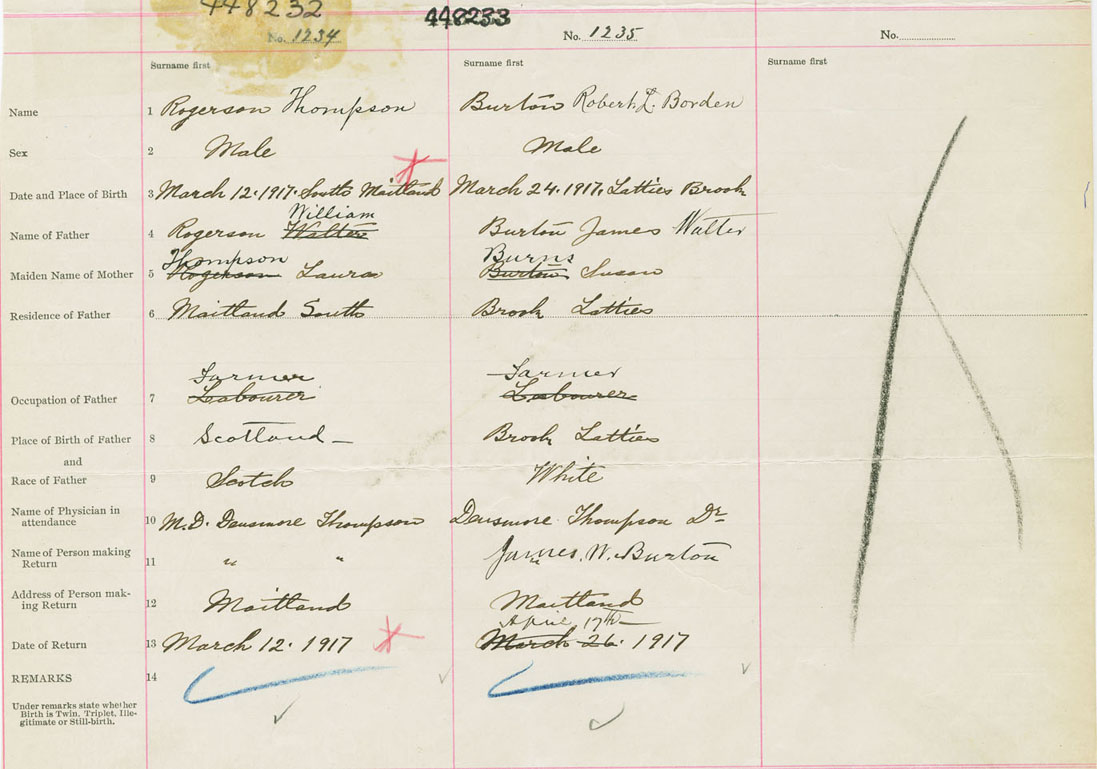 448232
448233
No. 1234
No. 1235
No.
Surname first
Surname first
Surname first
Name 1 Rogerson Thompson Burton Robert L. Borden
Sex 2 Male Male
Date and Place of Birth 3 March 12. 1917. South Maitland March 24. 1917. Latties Brook
William
Name of Father 4 Rogerson Walter Burton James Walter
Thompson Burns
Maiden Name of Mother 5 Rogerson Laura Burton Susan
Residence of Father 6 Maitland South Brook Latties
Farmer Farmer
Occupation of Father 7 Labourer Labourer
Place of Birth of Father 8 Scotland Brook Latties
and
Race of Father 9 Scotch White
Name of Physician in
attendance 10 M.D. Densmore Thompson Densmore Thompson Dr
Name of Person making
Return 11 " " James. W. Burton
Address of Person mak-
ing Return 12 Maitland Maitland
April 17th
Date of Return 13 March 12. 1917 March 26. 1917
REMARKS 14
Under remarks state whether
Birth is Twin, Triplet, Ille-
gitimate or Still-birth.